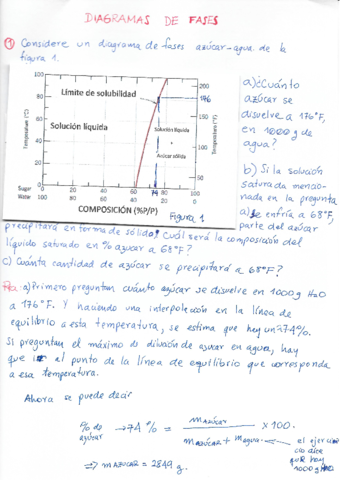 DIAGRAMAS DE FASES
① Considere un diagrama de fases azúcar-agua de la
figura 1.
a) ¿Cuánto
azúcar se
disuelve a 176°F,
en 1000 g de
agua?
b) Si la solución
saturada mencio-
nada en la pregunta
a) se enfría a 68°F,
parte del azúcar
Temperatura (°C)
100
80
60
40
20
0
Límite de solubilidad
Solución líquida
Solución líquida
+
Azúcar sólida
176
200
150
100
50
Temperatura (°F)
Sugar 0 20 40 60 74 80 100
Water 100 80 60 40 20 0
COMPOSICIÓN (%P/P)
Figura 1
precipitará en forma de sólido, ¿Cuál será la composición del
líquido saturado en % azúcar a 68°F?
c) ¿Cuánta cantidad de azúcar se precipitará a 68°F?
a) Primero preguntan cuánto azúcar se disuelve en 1000 g H2O
a 176°F. Y haciendo una interpolación en la línea de
equilibrio a esta temperatura, se estima que hay un ~74%.
Si preguntan el máximo de dilución de azúcar en agua, hay
que ir al punto de la línea de equilibrio que corresponda
a esa temperatura.
Ahora se puede decir
% de azúcar → 74 % = mAZÚCAR / mAZÚCAR + magua × 100.
el ejerci
cio dice
que hay
1000 g
⇒ mAZUCAR = 2849 g.